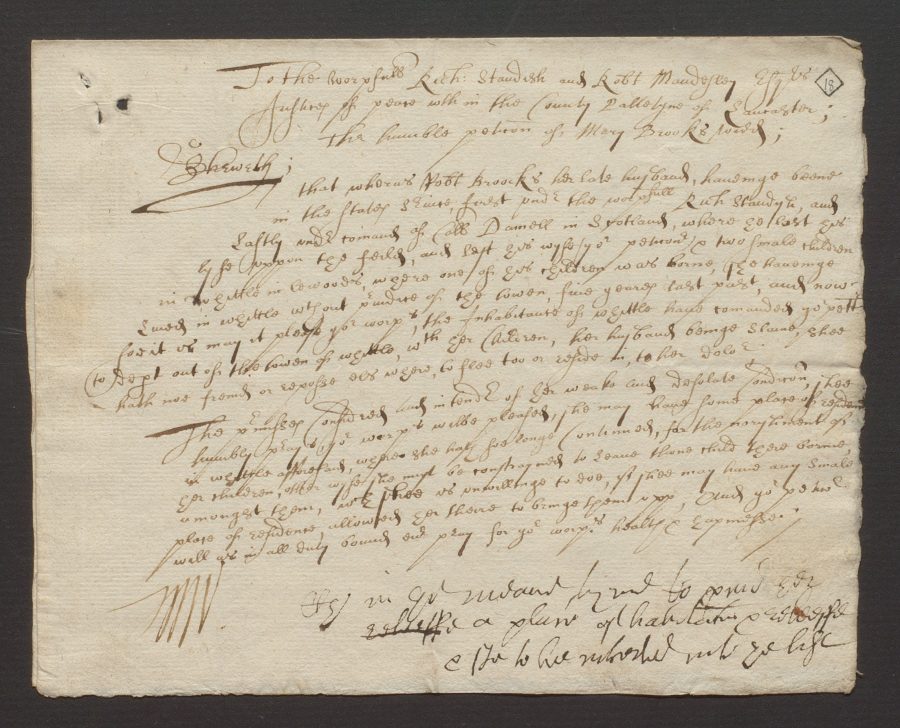 To the worpfull Rich: Standish and Robt Mawdesley Esqrs
Justices of peace wthin the County Pallatyne of Lancaster;
The humble peticon of Mary Brooks widd;
18
Sheweth;
that wheras Robt Broocks her late husband, haveinge beene
in the States Service, first undr the worpfull Rich Standish, and
lastly undr comand of Coll Daniell in Scotland, where he lost his
lyfe uppon the feild, and left his wyfe yor peticonr & two smale children
in Whittle in lewoods, where one of his children was borne, she haveinge
lived in whittle wthout priudice of the towen, five yeares last past, and now
soe it is may it please yor worps, the Inhabitants of whittle have comanded yor petr
to dept out of the towen of whittle, wth her Children, her husband beinge slaine, shee
hath noe freind or reposse els where, to flee too or reside in, to her dolor
The prmisses Considred and intendr of her weake and desolate Condicon, shee
humbly prays, yor worps wilbe pleased, she may have some place of residence
in whittle afforesaid, where she hath soe longe Continued, for the norishment of
her children, otherwyse she must be constrayned to leave thone child there borne
amongst them, wch shee is unwillinge to doe, yf shee may have any smale
place of residence allowed her there to bringe them upp, And yor petr
will as in all duty bound evr pray for yor worps health & happinesse:
in ye meane tyme to pvid her
a place of habitation & releeffe